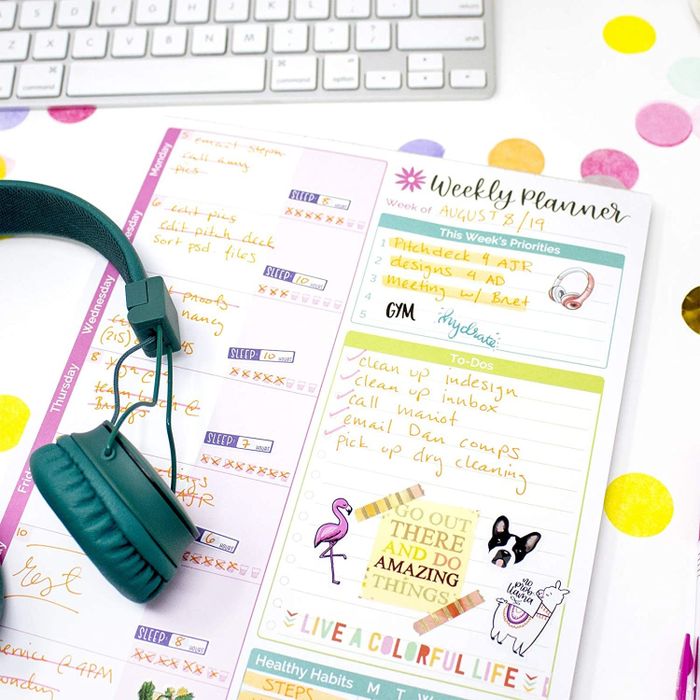 control
option
command
command
option
Monday
5 email steph
call amy
pics
SLEEP: 8 HOURS
6 edit pics
edit pitch deck
sort psd files
SLEEP: 10 HOURS
Wednesday
proofs
nancy
(215)
SLEEP: 10 HOURS
Thursday
8
SLEEP: 7 HOURS
Friday
AJR
6 HOURS
10
Rest
SLEEP: 8 HOURS
service @ 4PM
Weekly Planner
Week of AUGUST 8/19
This Week's Priorities
1 Pitchdeck 4 AJR
2 designs 4 AD
3 meeting w/ Bret
4 GYM hydrate
5
To-Dos
clean up indesign
clean up inbox
call mariot
email Dan comps
pick up dry cleaning
GO OUT
THERE
AND DO
AMAZING
THINGS
NO
PROB
LLAMA
LIVE A COLORFUL LIFE
Healthy Habits M T W
STEPS